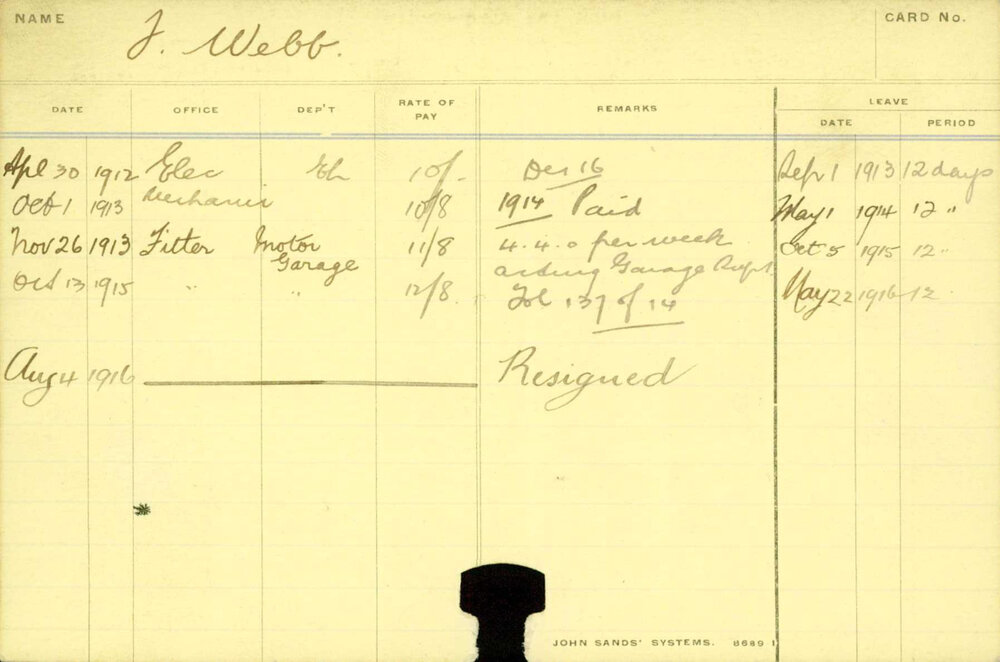 NAME J. Webb. CARD No.
DATE OFFICE DEP'T RATE OF PAY REMARKS LEAVE
DATE PERIOD
Apl 30 1912 Elec 10/- Dec 16 Sep 1 1913 12 days
Oct 1 1913 Mechanic 10/8 1914 Paid May 1 1914 12 "
Nov 26 1913 Fitter Motor Garage 11/8 4.4.0 per week Oct 5 1915 12 "
acting Garage Supt
Oct 13 1915 " " 12/8 Fol 137 of 14 May 22 1916 12
Aug 4 1916 Resigned
JOHN SANDS' SYSTEMS. 8689